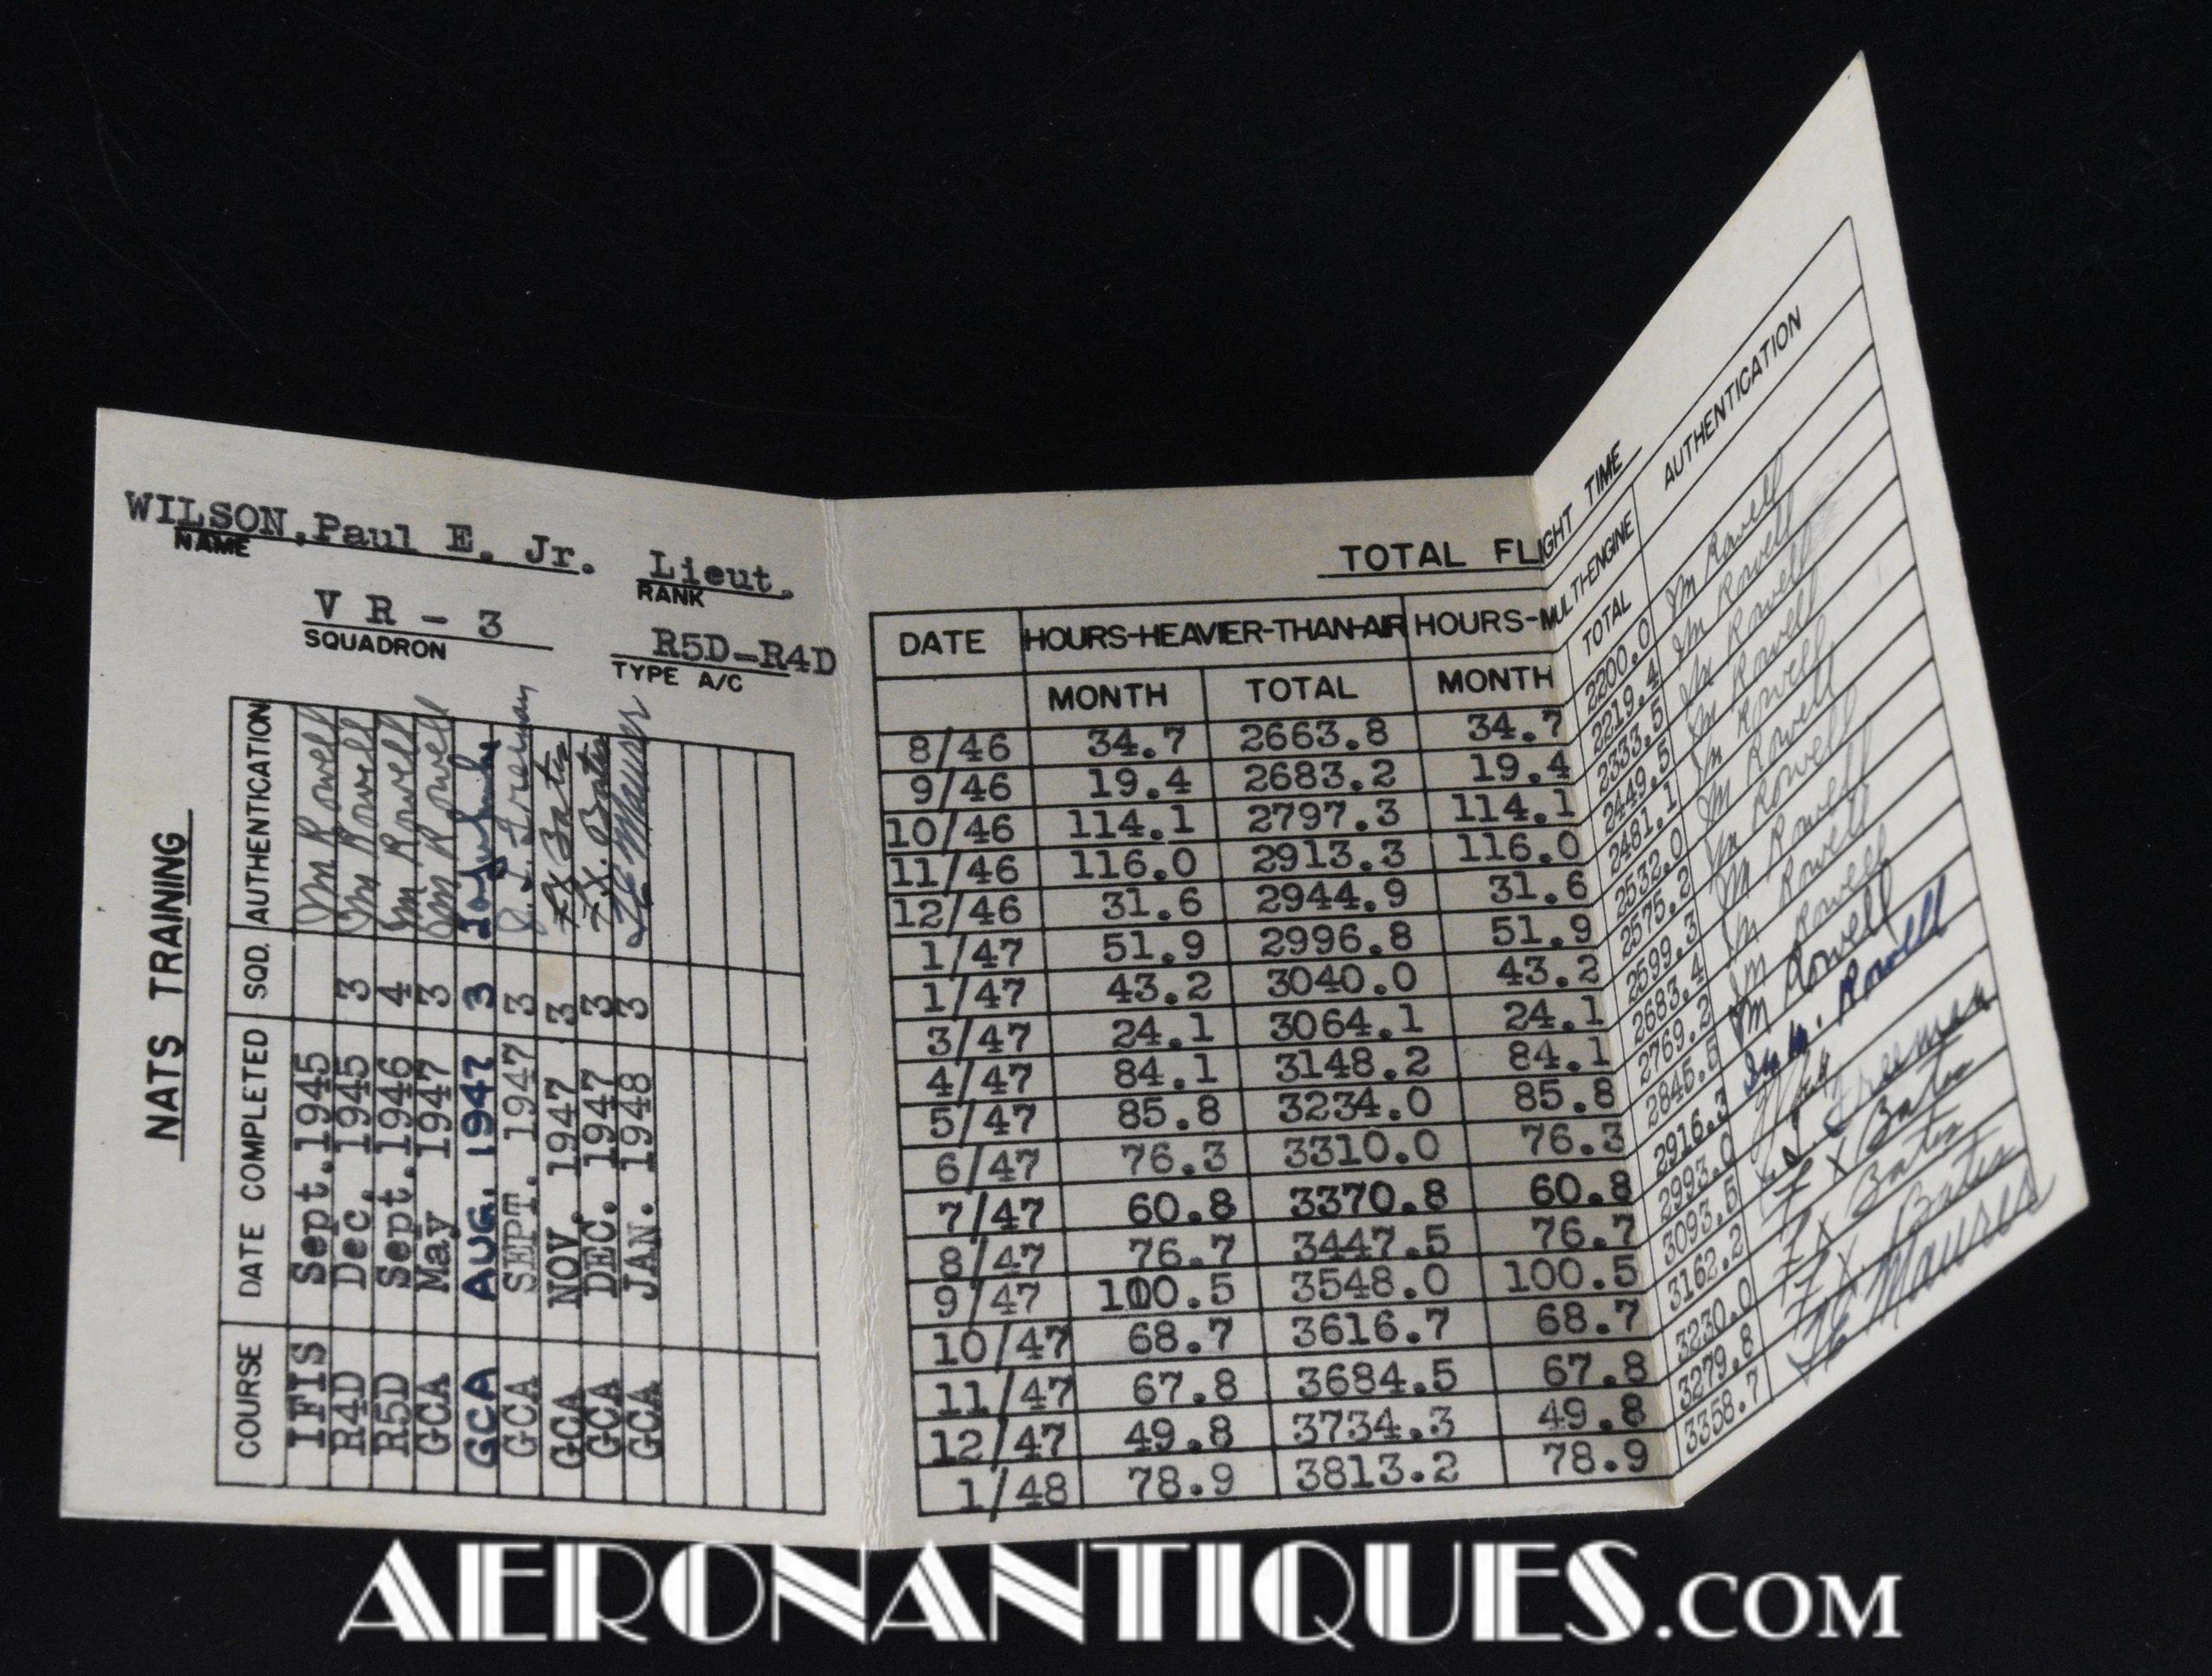 WILSON, Paul E. Jr. Lieut.
NAME RANK
V R - 3 R5D-R4D
SQUADRON TYPE A/C
NATS TRAINING
COURSE DATE COMPLETED SQD. AUTHENTICATION
IFIS Sept.1945 Jm Rowell
R4D Dec. 1945 3 Jm Rowell
R5D Sept.1946 4 Jm Rowell
GCA May 1947 3 Jm Rowell
GCA AUG. 1947 3
GCA SEPT. 1947 3 Freeman
GCA NOV. 1947 3 F X Bates
GCA DEC. 1947 3 F.X. Bates
GCA JAN. 1948 3
TOTAL FLIGHT TIME
DATE HOURS-HEAVIER-THAN-AIR HOURS-MULTI-ENGINE AUTHENTICATION
MONTH TOTAL MONTH TOTAL
8/46 34.7 2663.8 34.7 2200.0 Jm Rowell
9/46 19.4 2683.2 19.4 2219.4 Jm Rowell
10/46 114.1 2797.3 114.1 2333.5 Jm Rowell
11/46 116.0 2913.3 116.0 2449.5 Jm Rowell
12/46 31.6 2944.9 31.6 2481.1 Jm Rowell
1/47 51.9 2996.8 51.9 2532.0 Jm Rowell
1/47 43.2 3040.0 43.2 2575.2 Jm Rowell
3/47 24.1 3064.1 24.1 2599.3 Jm Rowell
4/47 84.1 3148.2 84.1 2683.4 Jm Rowell
5/47 85.8 3234.0 85.8 2769.2 Jm Rowell
6/47 76.3 3310.0 76.3 2845.5 Jm Rowell
7/47 60.8 3370.8 60.8 2916.3 Jm. Rowell
8/47 76.7 3447.5 76.7 2993.0
9/47 100.5 3548.0 100.5 3093.5 Freeman
10/47 68.7 3616.7 68.7 3162.2 F X Bates
11/47 67.8 3684.5 67.8 3230.0 F X Bates
12/47 49.8 3734.3 49.8 3279.8 F X Bates
1/48 78.9 3813.2 78.9 3358.7
AERONANTIQUES.COM